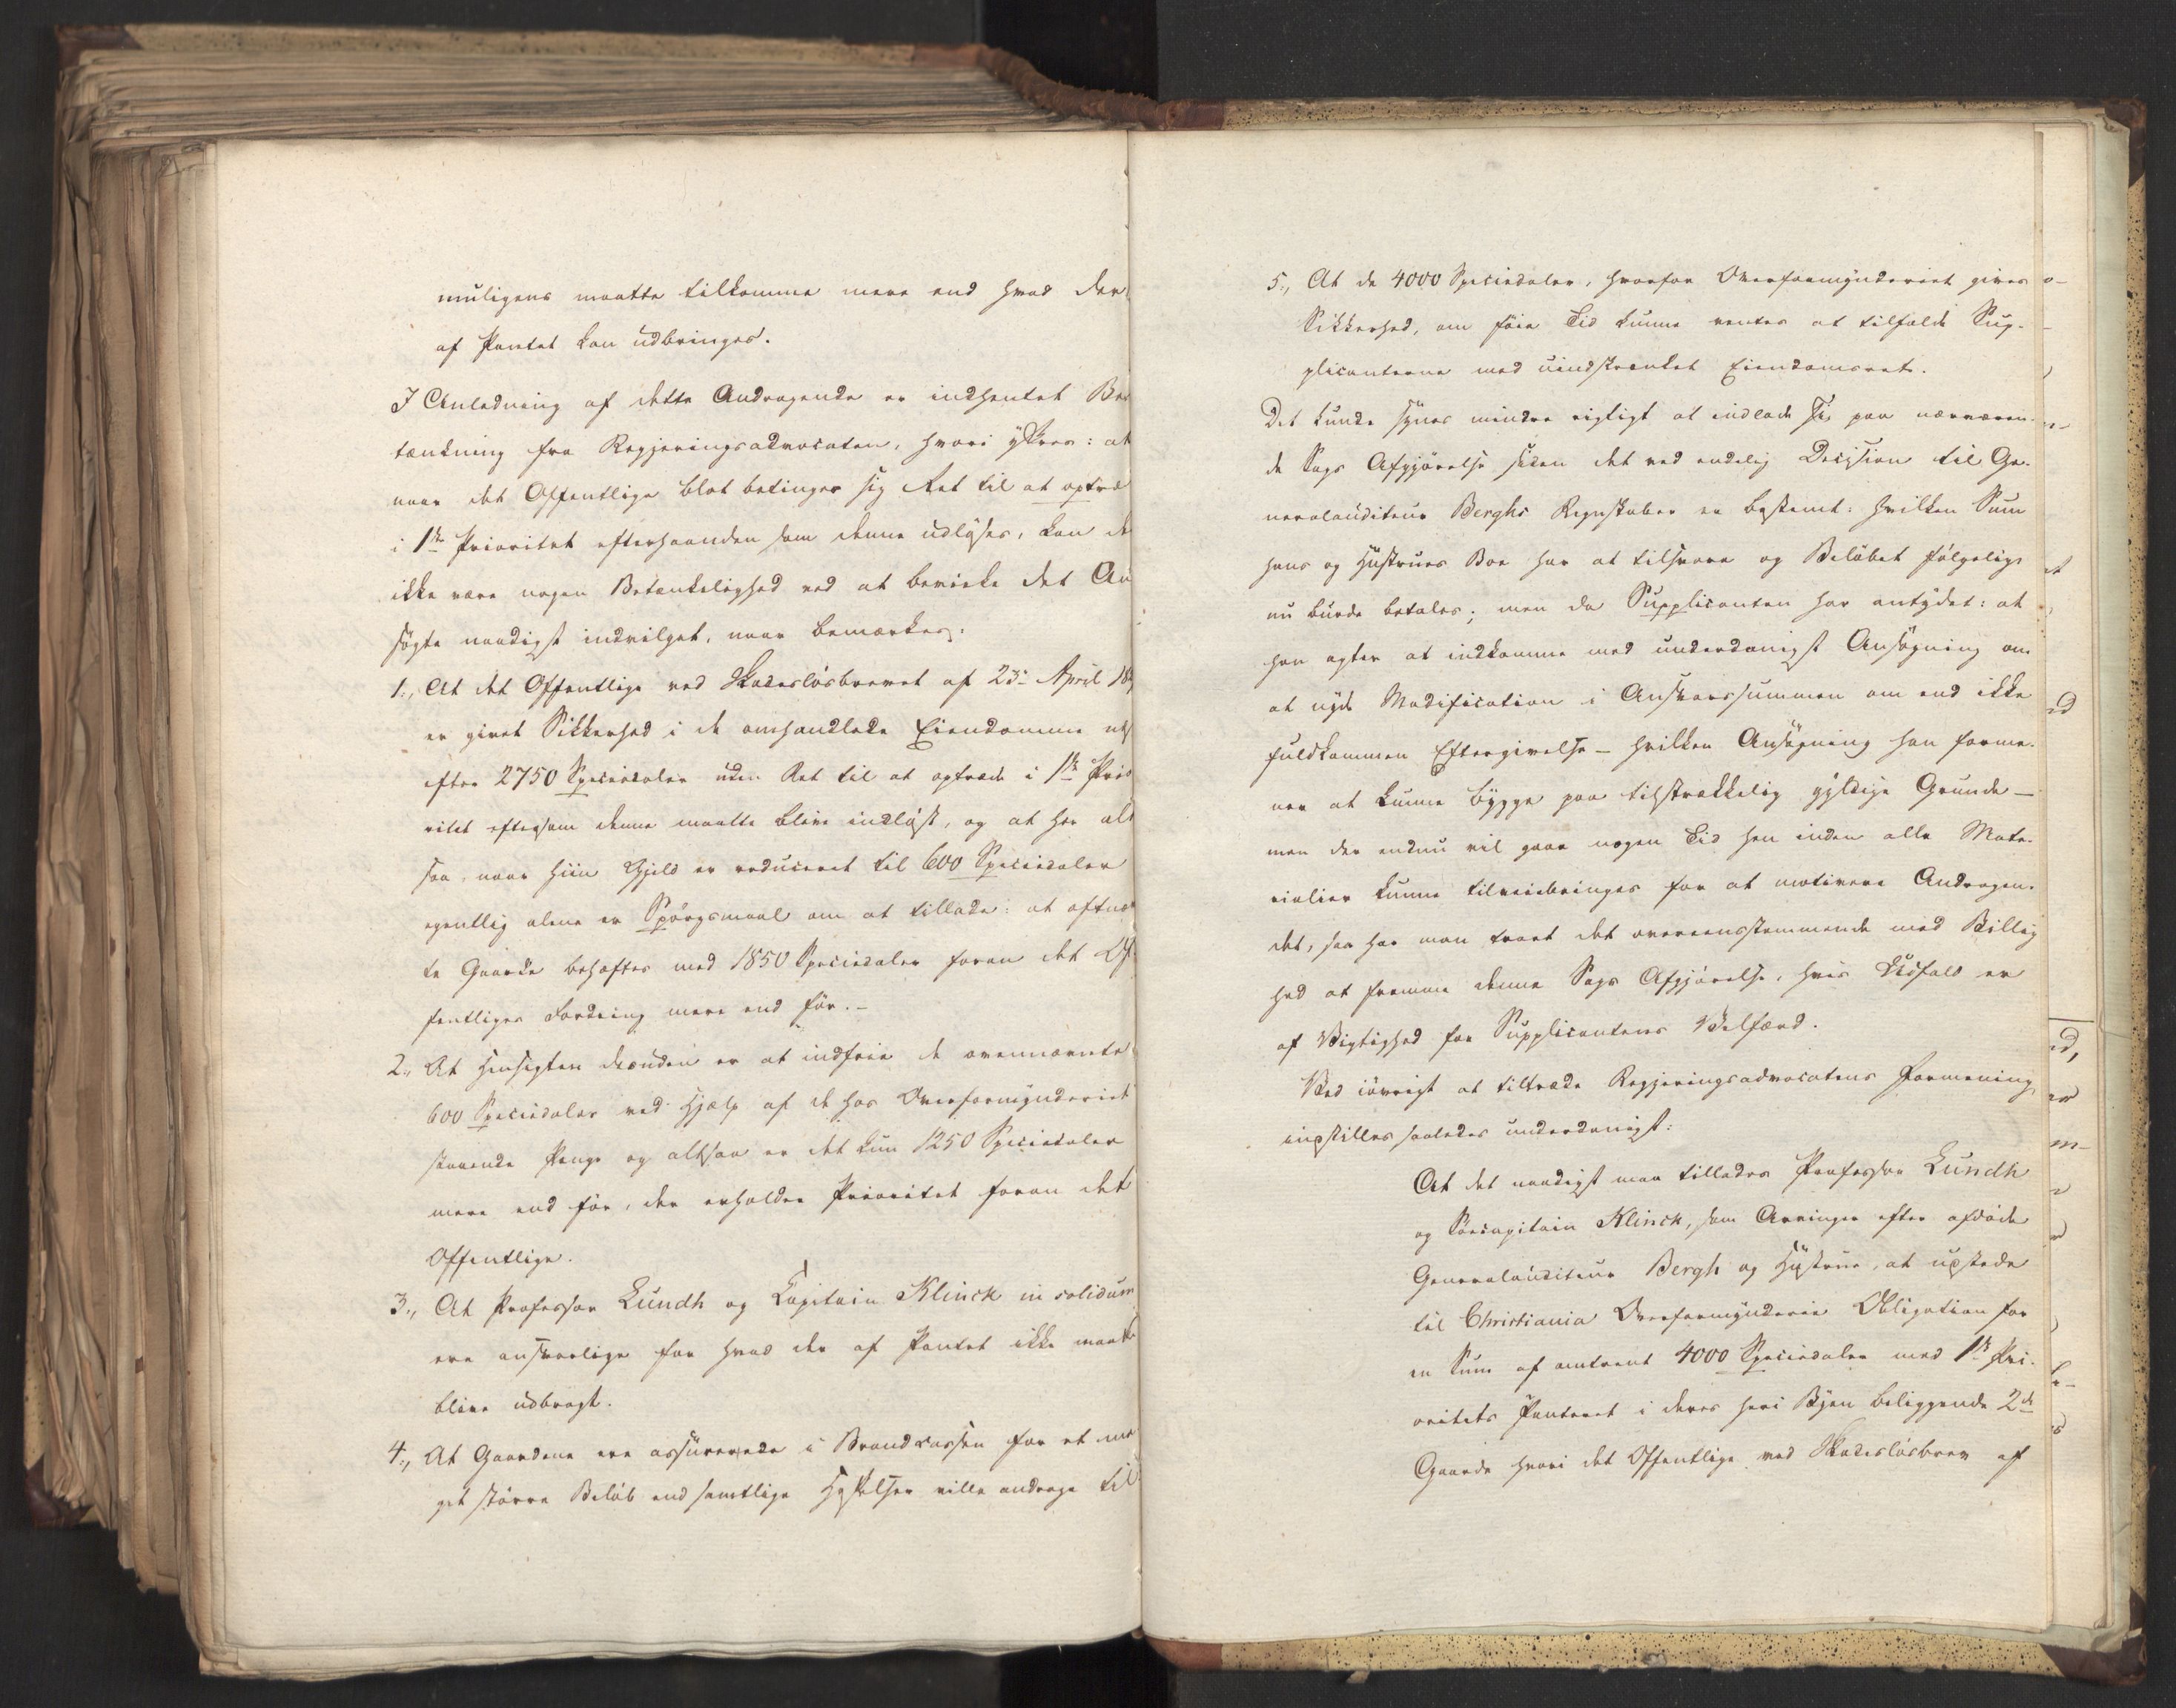 muligens maatte tilkomme mere end hvad der
af Pantet kan udbringes.
I Anledning af dette Andragende er indhentet Be
tænkning fra Regjeringsadvocaten, hvori yttres: at
naar det Offentlige blot betinger sig Ret til at optræ
i 1ste Prioritet efterhaanden som denne udlöses, kan de
ikke være nogen Betænkelighed ved at bevirke det An
søgte naadigst indvilget, naar bemærkes:
1., At det Offentlige ved Skadeslösbrevet af 23de April 18
er givet Sikkerhed i de omhandlede Eiendomme næst
efter 2750 Speciedaler uden Ret til at optræde i 1ste Prio
ritet eftersom denne maatte blive indløst, og at her alt
saa, naar hiin Gjeld er reduceret til 600 Speciedaler
egentlig alene er Spörgsmaal om at tillade: at oftnævn
te Gaarde behæftes med 1850 Speciedaler foran det Of
fentliges Fordring mere end för.-
2., At Hensigten desuden er at indfrie de ovennævnte
600 Speciedaler ved Hjælp af de hos Overformynderiet
staaende Penge og altsaa er det kun 1250 Speciedaler
mere end för, der erholder Prioritet foran det
Offentlige.
3., At Professor Lundh og Capitain Klinck in solidum
ere ansvarlige for hvad der af Pantet ikke maatte
blive udbragt.
4., At Gaardene ere assurerede i Brandcassen for et me
get större Belöb end samtlige Heftelser ville andrage til
5., At de 4000 Speciedaler, hvorfor Overformynderiet gives
Sikkerhed, om föie Tid kunne ventes at tilfalde Sup-
plicanterne med uindskrænket Eiendomsret.
Det kunde synes mindre rigtigt at indlade sig paa nærværen-
de Sags Afgjörelse siden det ved endelig Decision til Ge-
neralauditeur Berghs Regnskaber er bestemt: hvilken Sum
hans og Hustrues Boe har at tilsvare og Belöbet fölgelig
nu burde betales; men da Supplicanten har antydet: at
han agter at indkomme med underdanigst Ansøgning om
at nyde Modification i Ansvarssummen om end ikke
fuldkommen Eftergivelse – hvilken Ansøgning han forme-
ner at kunne bygge paa tilstrækkelig gyldige Grunde –
men der endnu vil gaae nogen Tid hen inden alle Mate-
rialier kunne tilveiebringes for at motivere Andragen-
det, saa har man troet det overeensstemmende med Billig
hed at fremme denne Sags Afgjörelse, hvis Udfald er
af Vigtighed for Supplicantens Velfærd.
Ved iövrigt at tiltræde Regjeringsadvocatens Formening
indstilles saaledes underdanigst:
At det naadigst maa tillades Professor Lundh
og Söecapitain Klinck, som Arvinger efter afdöde
Generalauditeur Bergh og Hustrue, at udstede
til Christiania Overformynderie Obligation for
en Sum af omtrent 4000 Speciedaler med 1ste Pri-
oritets Panteret i deres heri Byen beliggende 2de
Gaarde hvori det Offentlige ved Skadeslösbrev af